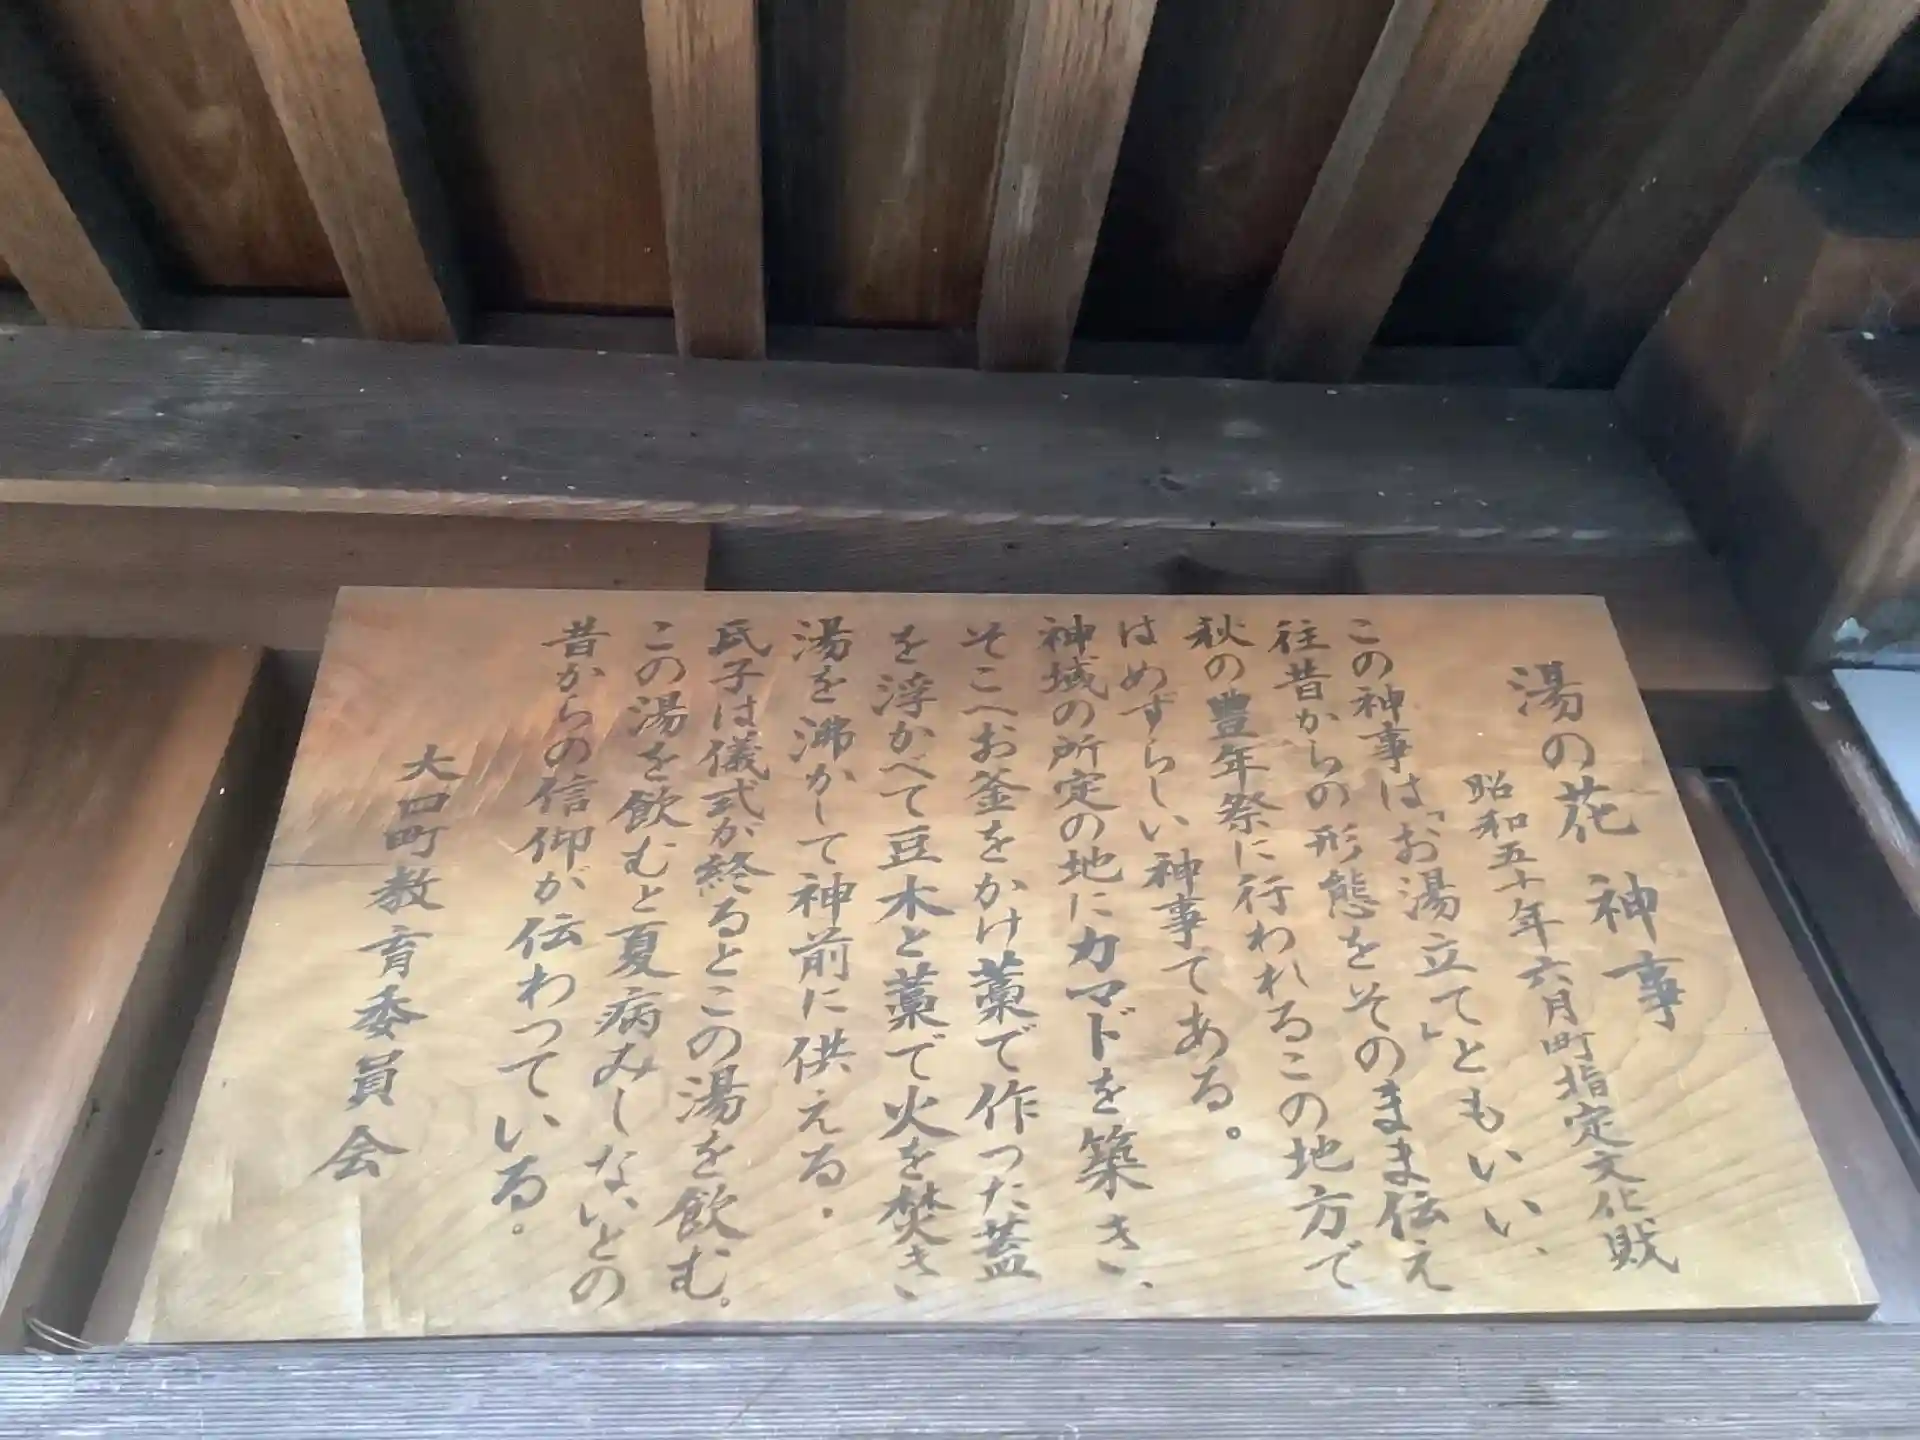 湯の花 神事
昭和五十年六月町指定文化財
この神事は「お湯立て」ともいい、
往昔からの形態をそのまま伝え
秋の豊年祭に行われるこの地方で
はめずらしい神事である。
神域の所定の地にカマドを築き、
そこへお釜をかけ藁で作った蓋
を浮かべて豆木と藁で火を焚き
湯を沸かして神前に供える。
氏子は儀式が終るとこの湯を飲む。
この湯を飲むと夏病みしないとの
昔からの信仰が伝わっている。
大口町教育委員会